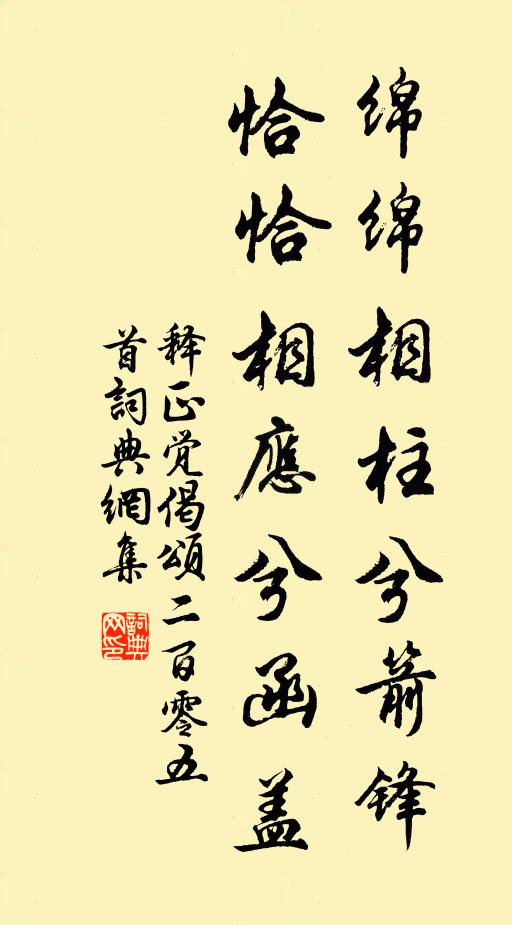 绵绵相柱兮箭锋
恰恰相應兮函盖
释正觉偈頌二百零五
首詞典網集
詞典网印